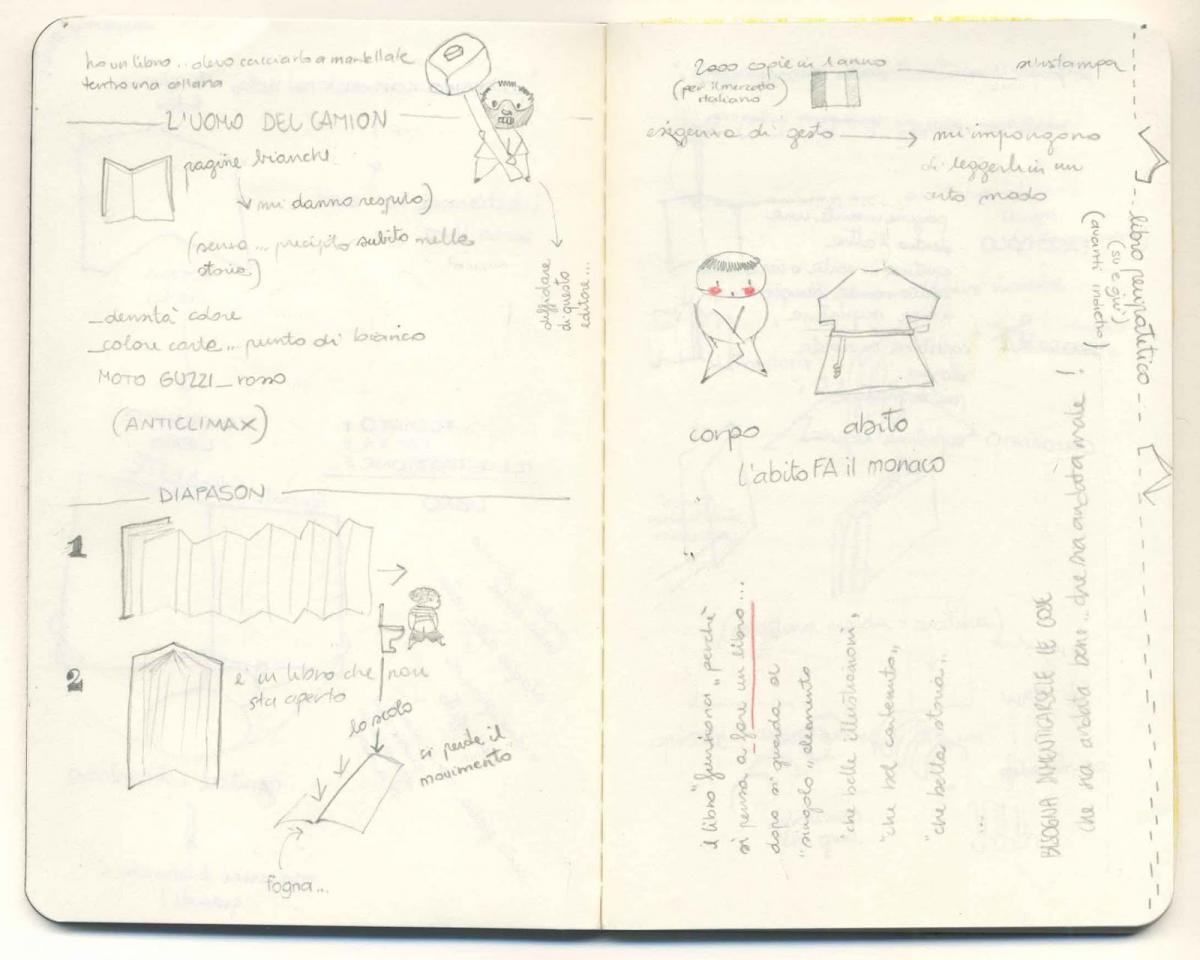 ho un libro.. devo cacciarlo a martellate
dentro una collana
L'UOMO DEL CAMION
pagine bianche
mi danno respiro)
(senza ... precipito subito nella
storia)
_densità colore
_colore carta... punto di bianco
MOTO GUZZI_rosso
(ANTICLIMAX)
diffidare
di questo
editore...
DIAPASON
1
2
è un libro che non
sta aperto
lo scolo
si perde il
movimento
fogna...
2000 copie in 1 anno ristampa
(per il mercato
italiano)
esigenza di gesto
mi impongono
di leggerli in un
certo modo
corpo
abito
l'abito FA il monaco
libro peripatetico
(su e giù)
(avanti indietro)
il libro "funziona" perché
si pensa a fare un libro...
dopo si guarda al
"singolo" elemento
"che belle illustrazioni"
"che bel contenuto"
"che bella storia"
...
BISOGNA DIMENTICARSELE LE COSE
che sia andata bene.. che sia andata male!